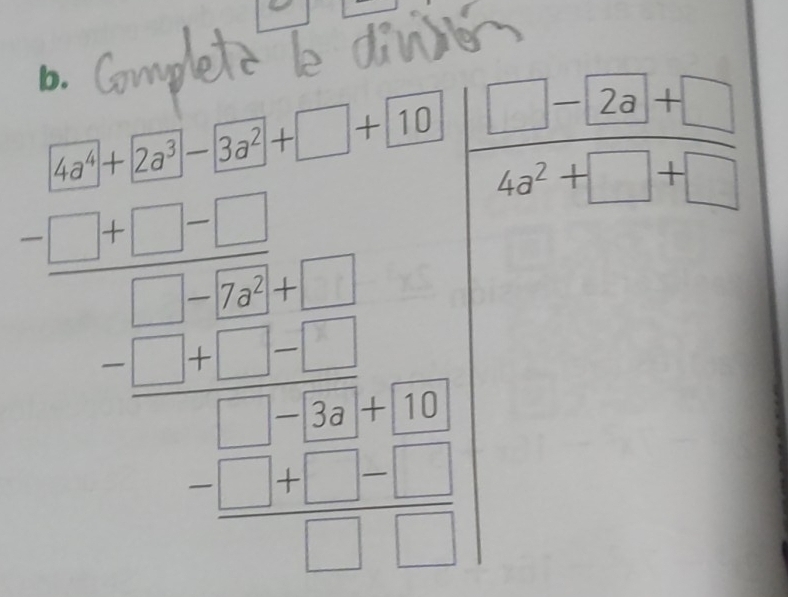 b. Completa la división
4a⁴ + 2a³ − 3a² + □ + 10 □ − 2a + □
4a² + □ + □
− □ + □ − □
□ − 7a² + □
− □ + □ − □
□ − 3a + 10
− □ + □ − □
□ □